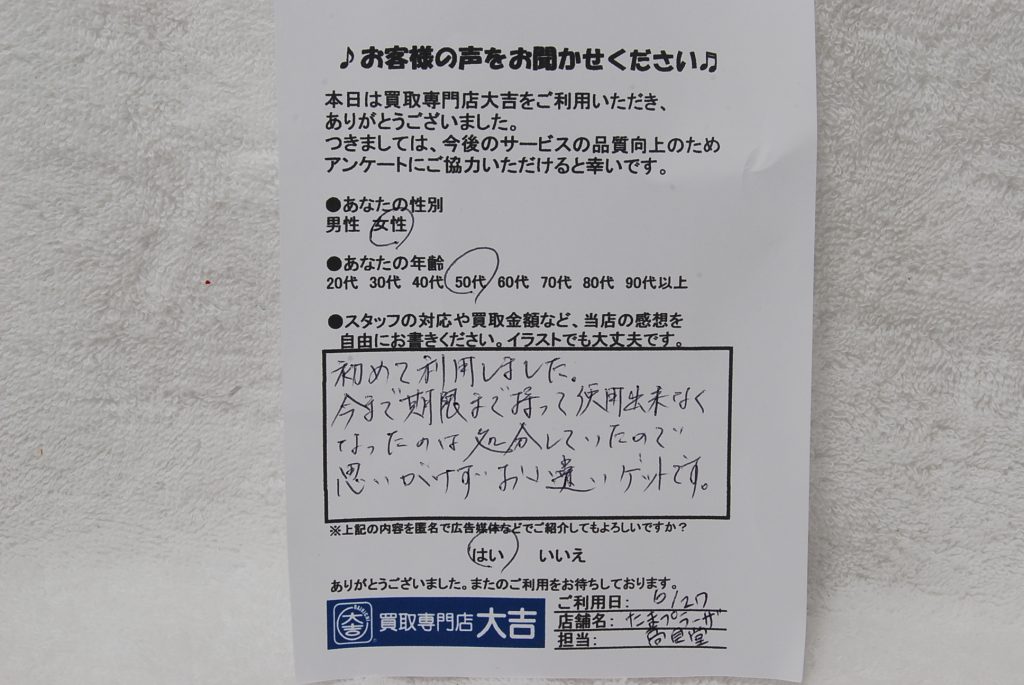 ♪お客様の声をお聞かせください♫
本日は買取専門店大吉をご利用いただき、
ありがとうございました。
つきましては、今後のサービスの品質向上のため
アンケートにご協力いただけると幸いです。
●あなたの性別
男性 女性
●あなたの年齢
20代 30代 40代 50代 60代 70代 80代 90代以上
●スタッフの対応や買取金額など、当店の感想を
自由にお書きください。イラストでも大丈夫です。
初めて利用しました。
今まで期限まで持って使用出来なく
なったのは処分していたので
思いがけずお小遣いゲットです。
※上記の内容を匿名で広告媒体などでご紹介してもよろしいですか？
はい いいえ
ありがとうございました。またのご利用をお待ちしております。
大吉 買取専門店 大吉
ご利用日: 6/27
店舗名: たまプラーザ
担当: